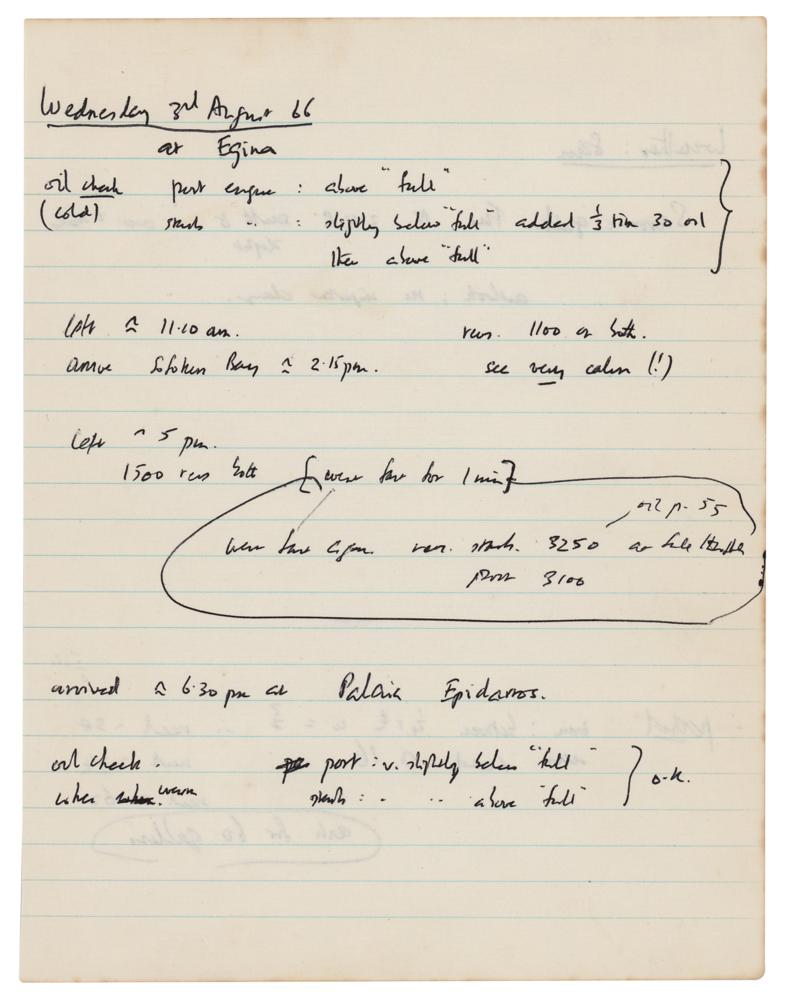 Wednesday 3rd August 66
at Egina
oil check port engine : above "full"
(cold) starb " : slightly below "full added 1/3 tin 30 oil
then above "full"
left ≃ 11.10 am. revs. 1100 on both.
arrive Bay ≃ 2.15 pm. see very calm (!)
left ~ 5 pm.
1500 revs both [went fast for 1 min]
oil p. 55
went fast again. rev. starb. 3250 at full throttle
port 3100
arrived ≃ 6.30 pm at Palaia Epidavros.
oil check. port : v. slightly below "full"
when warm starb : " " above "full" } o.k.